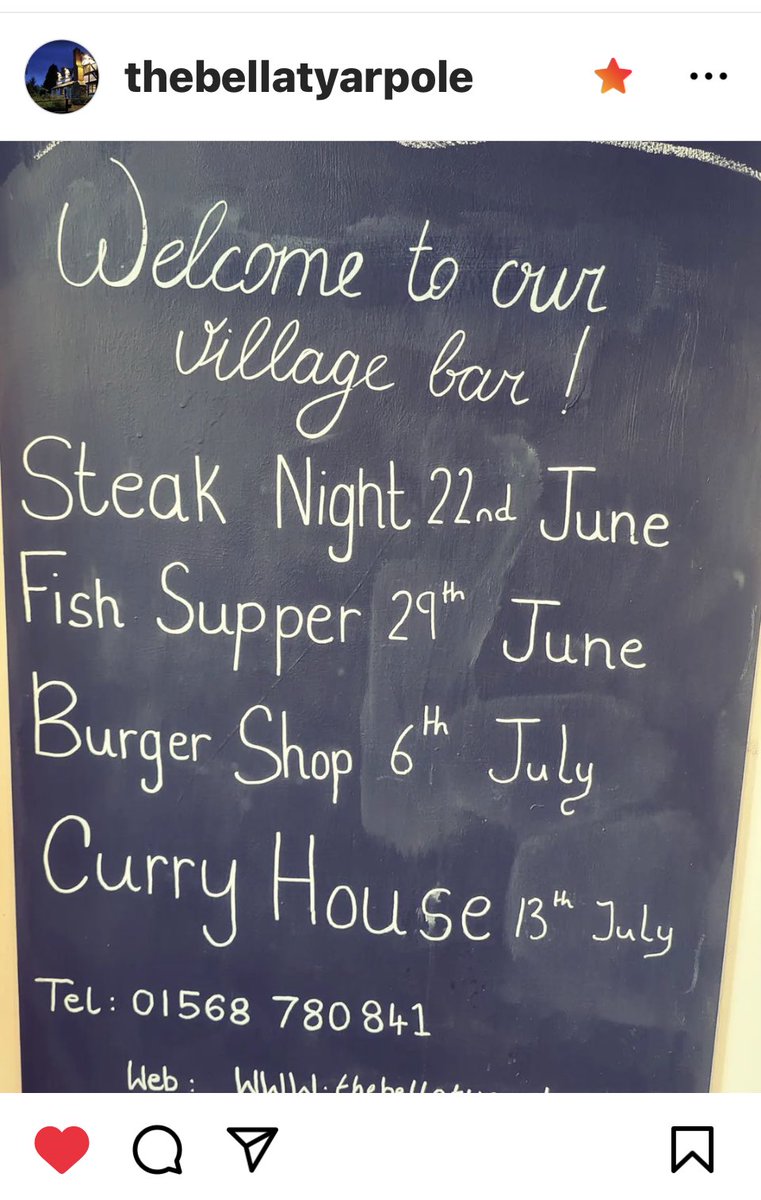 thebellatyarpole
Welcome to our
village bar!
Steak Night 22nd June
Fish Supper 29th June
Burger Shop 6th July
Curry House 13th July
Tel: 01568 780841
Web: